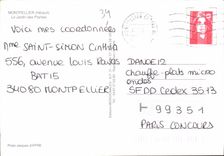 MONTPELLIER (Hérault)
Le Jardin des Plantes
34
Voici mes coordonnées
Mme SAINT-SIMON Cinthia
556, avenue Louis Ravas
BAT 15
34080 MONTPELLIER
DANDE12
chauffe-plats micro
ondes
SFDD Cedex 3513
99351
PARIS CONCOURS